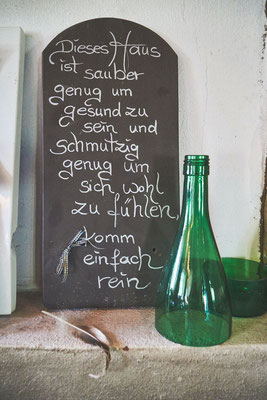 Dieses Haus
ist sauber
genug um
gesund zu
sein und
schmutzig
genug um
sich wohl
zu fühlen,
komm
einfach
rein